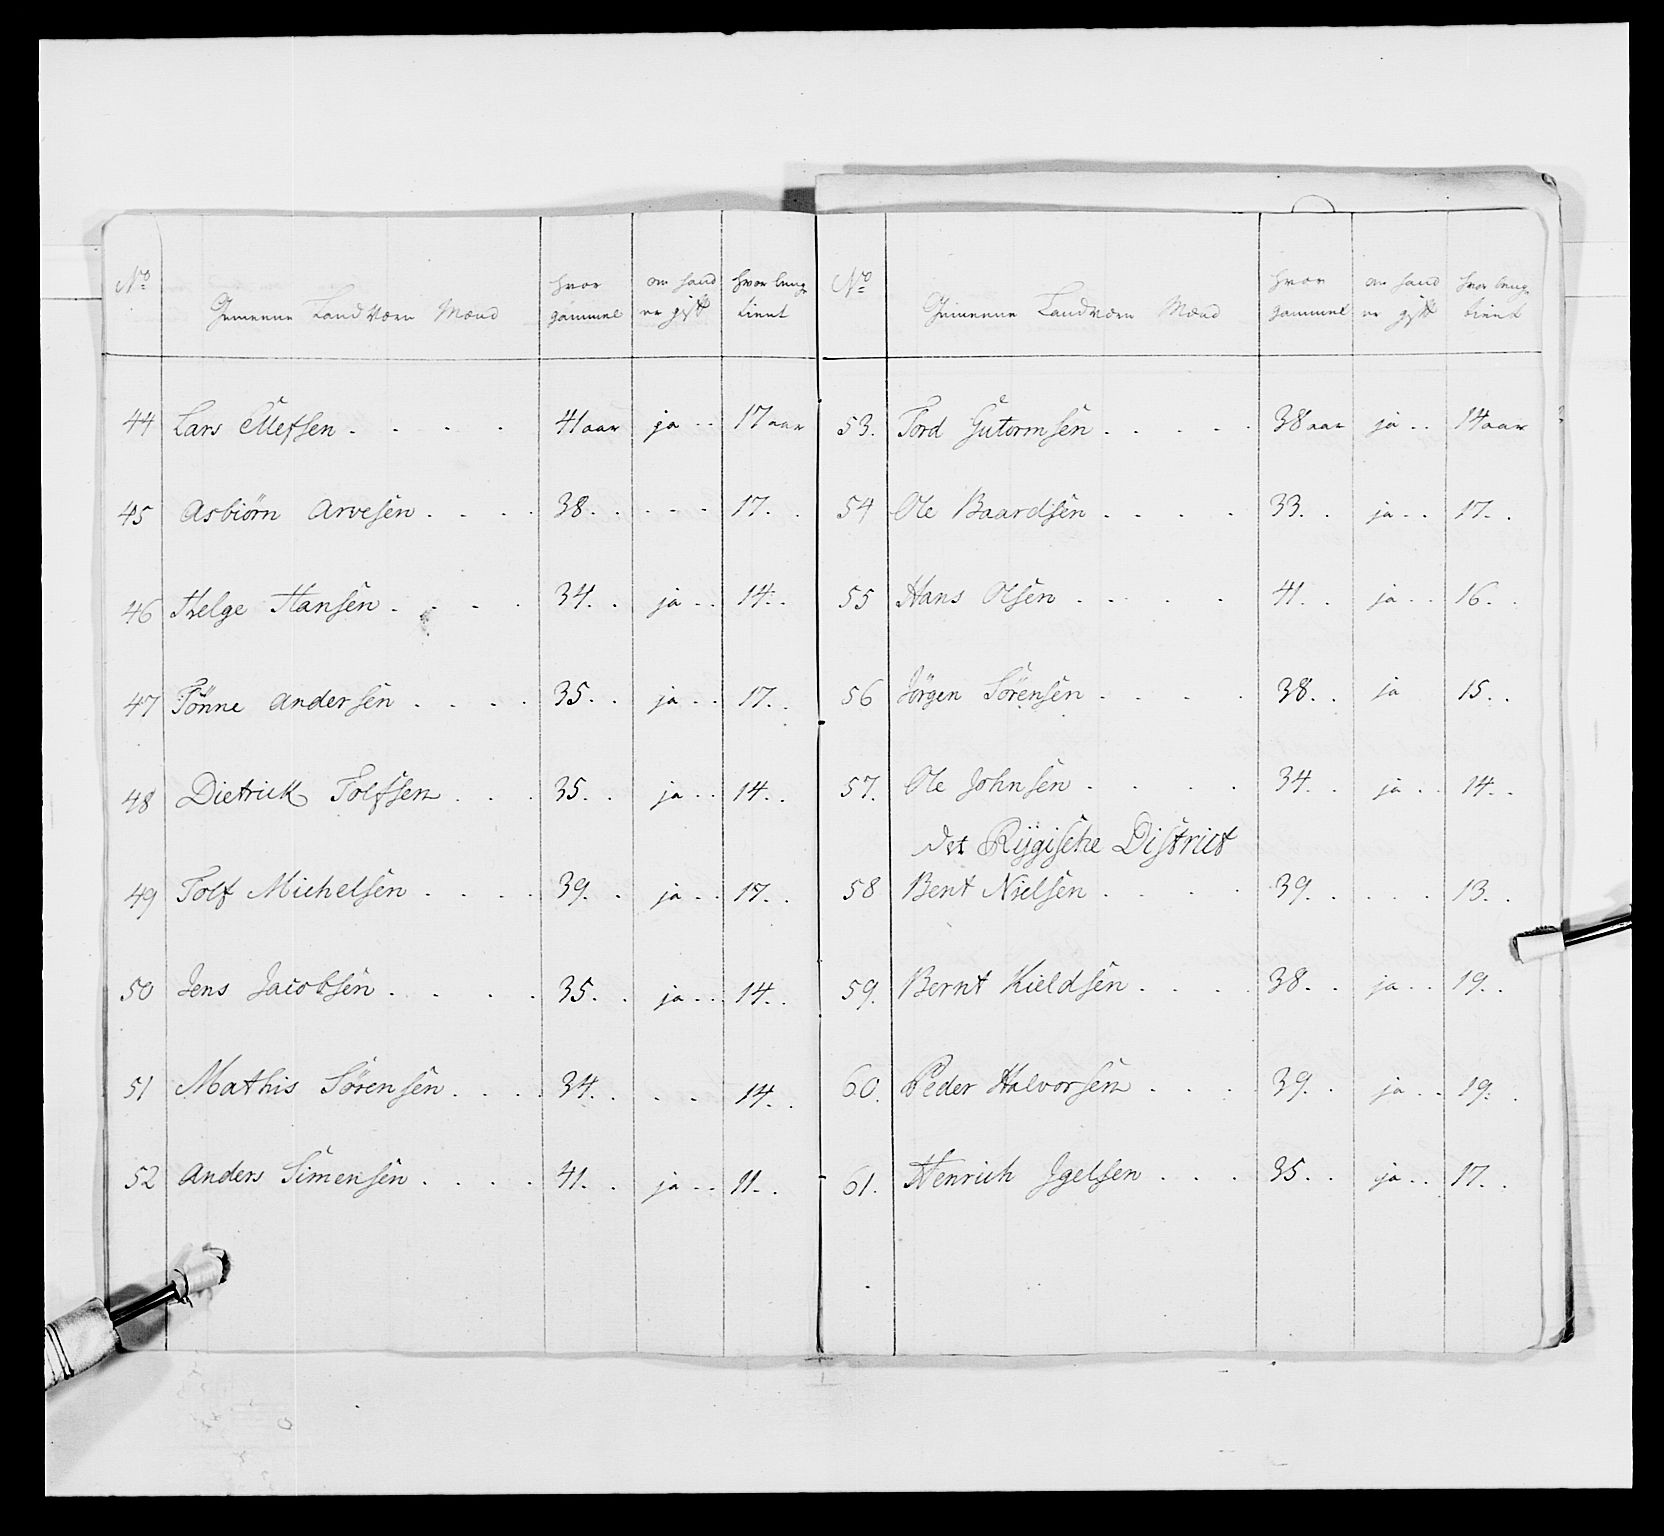 No Gemeene Land Værn Mænd hvor gammel om hand er gift hvor længe tient
44 Lars Ellefsen . . . . 41 aar ja . . 17 aar
45 Asbiörn Arvesen . . . . 38. . . . . 17. .
46 Helge Hansen . . . . 34. . ja . . 14. .
47 Tönne Andersen . . . . 35. . ja . . 17. .
48 Dietrick Tolfsen . . . 35. . ja . . 14. .
49 Tolf Michelsen . . . . 39. . ja . . 17. .
50 Jens Jacobsen . . . . 35. . ja . . 14. .
51 Mathis Sörensen . . . . 34. . . . 14. .
52 Anders Simensen . . . . 41. . ja . . 11. .
No Gemeene Landværn Mænd hvor gammel om hand er gift hvor længe tient
53. Tord Gutormsen . . . . 38 aar ja . . 14 aar
54 Ole Baardsen . . . . 33. . ja . . 17. .
55 Hans Olsen . . . . 41. . ja . . 16. .
56 Jörgen Sörensen . . . . 38. . ja 15. .
57. Ole Johnsen . . . . 34. . ja . . 14. .
Det Rygische District
58 Bent Nielsen . . . . 39. . . . . 13. .
59. Bernt Kieldsen . . . . 38. . ja . . 19. .
60. Peder Halvorsen . . . 39. . ja . . 19. .
61. Henrich Igelsen . . . 35. . ja . . 17. .